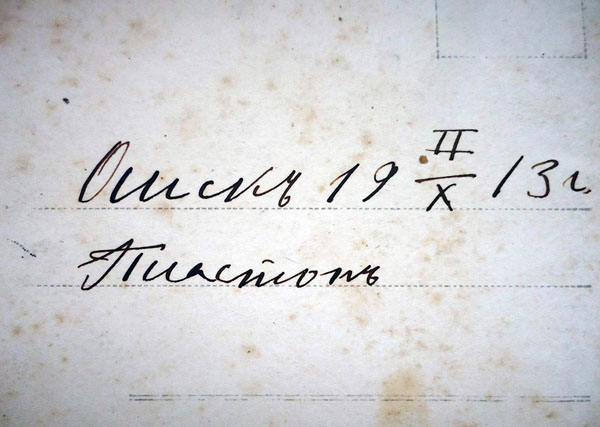 Омскъ 19 II/X 13 г.
Пиастопъ